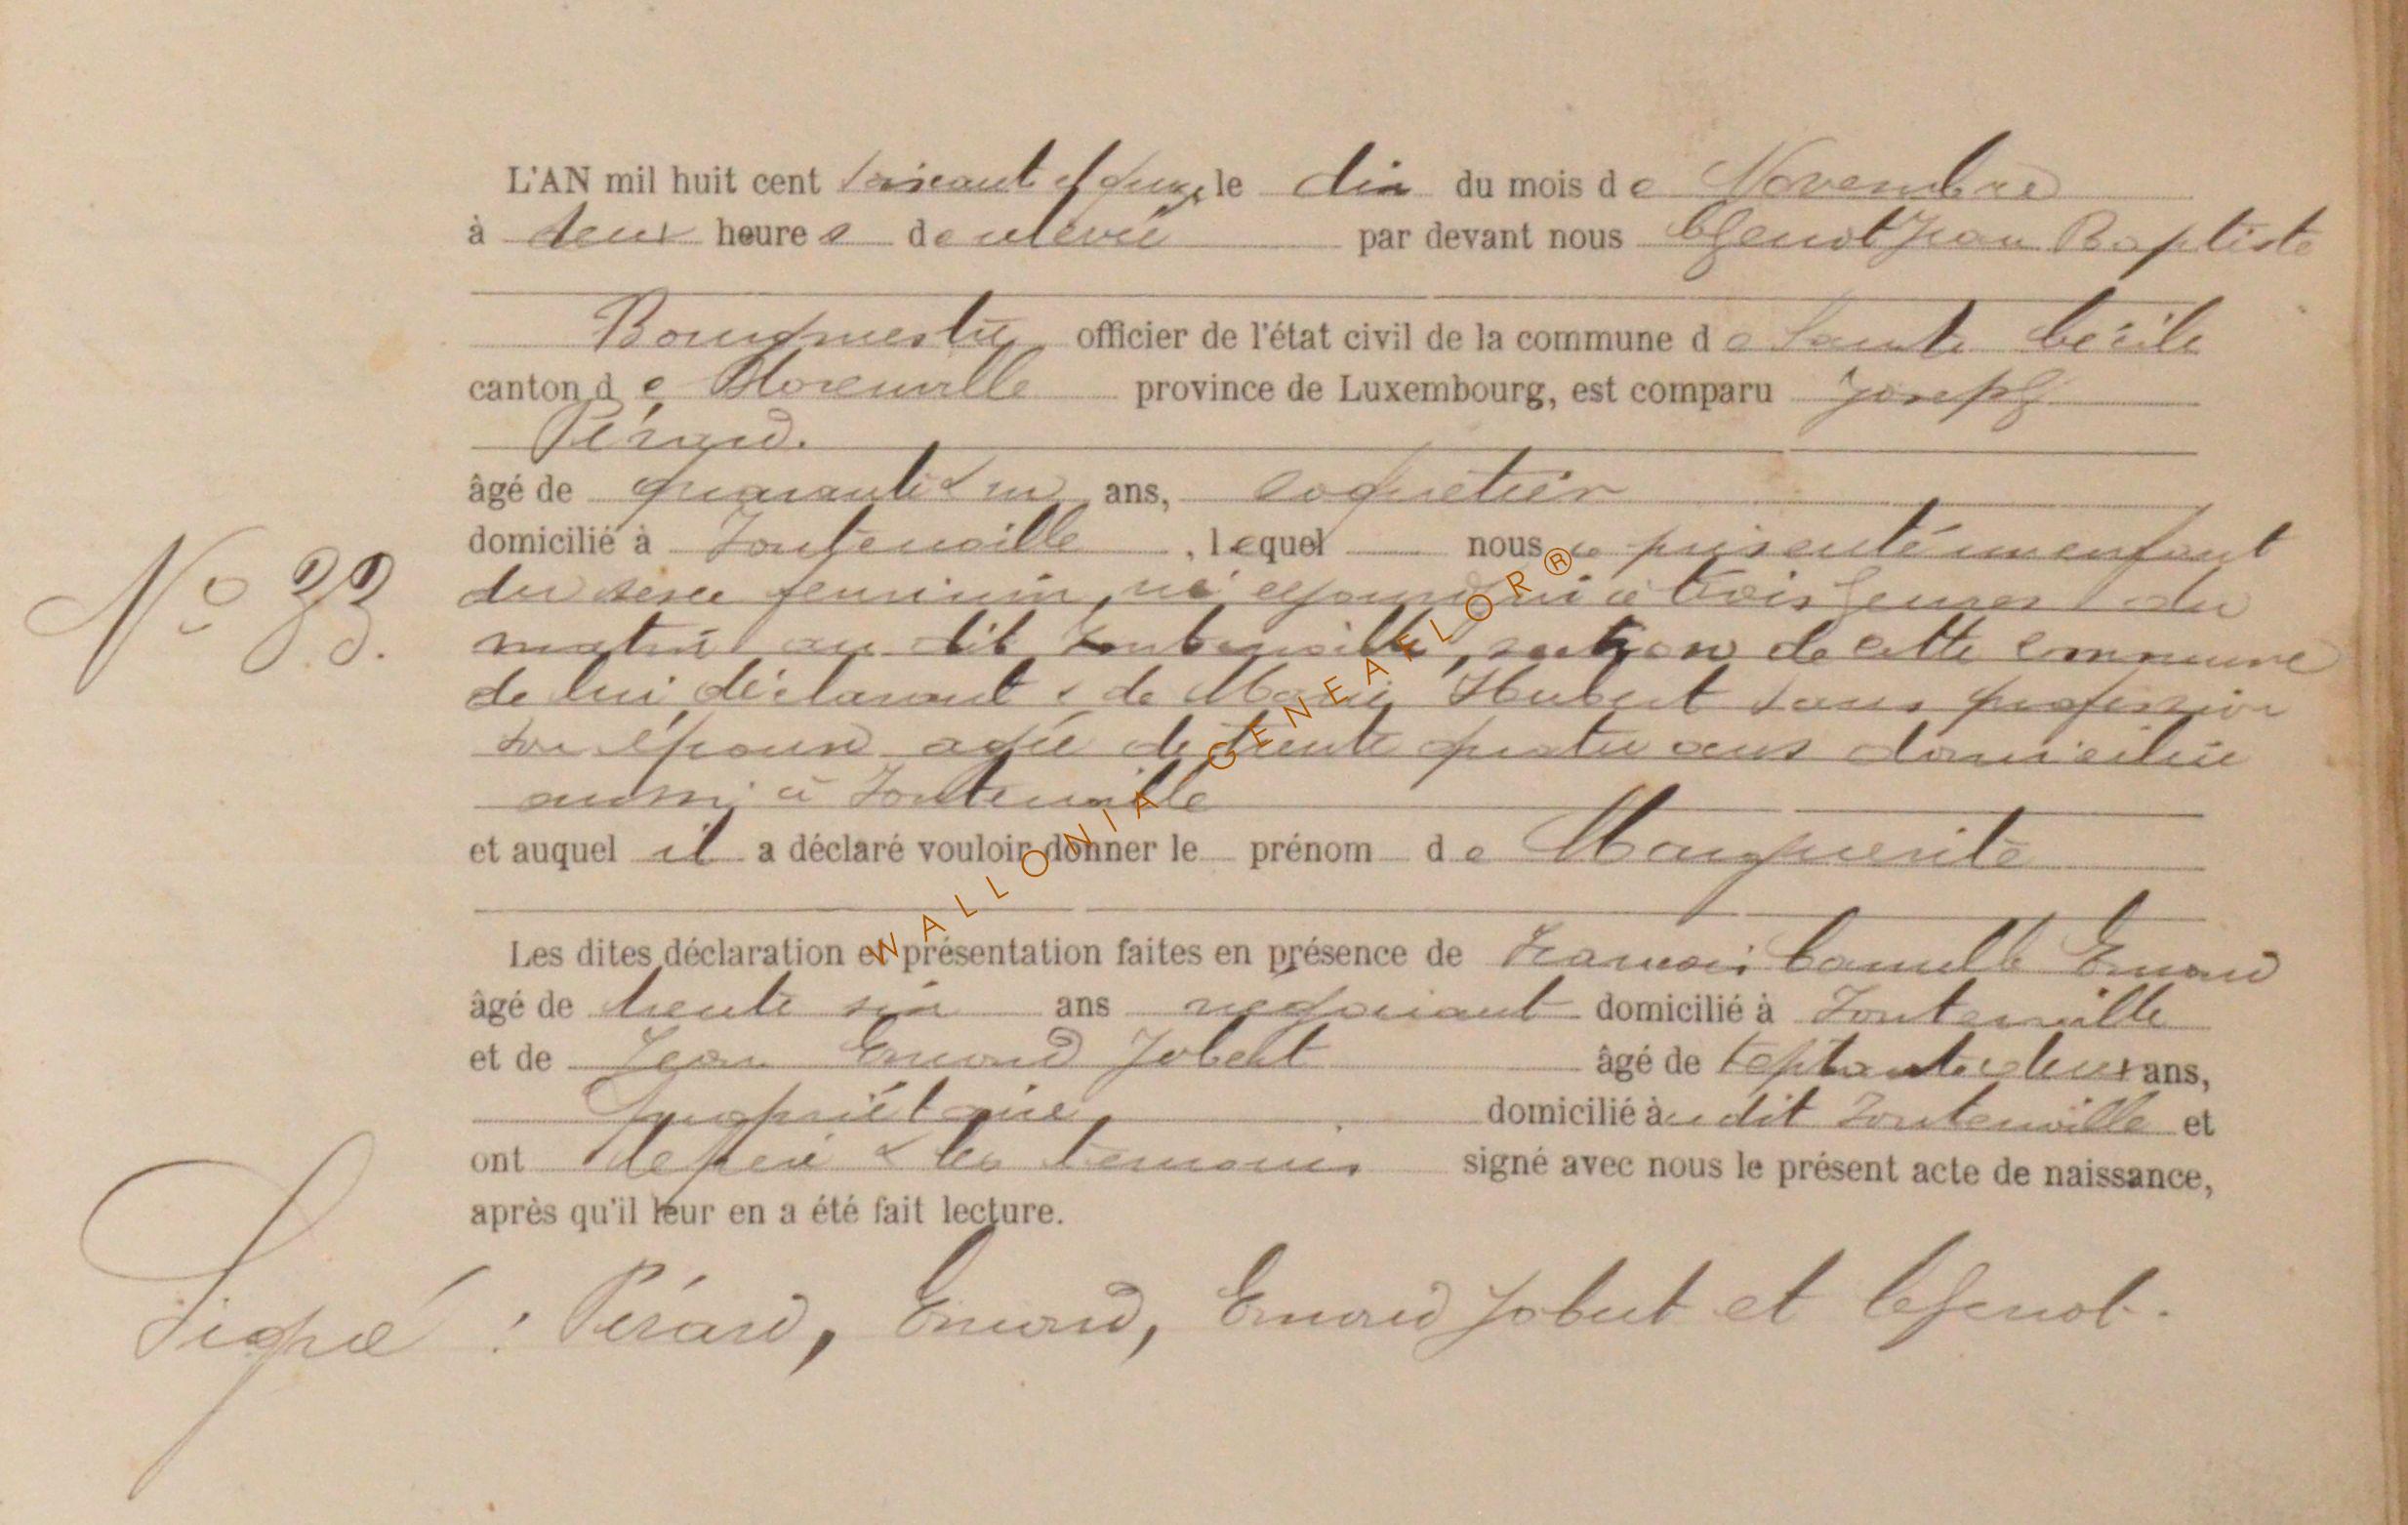 L'AN mil huit cent le dix du mois de Novembre
à deux heures de relevée par devant nous Jean Baptiste
Bourgmestre officier de l'état civil de la commune de Sainte Cécile
canton de Florenville province de Luxembourg, est comparu Joseph
Pérard.
âgé de quarante & un ans, coquetier
domicilié à Fontenoille, lequel nous a présenté un enfant
du sexe feminin, né aujourd'hui à trois heures du
matin au dit Fontenoille, section de cette commune
de lui déclarant & de Marie Hubert sans profession
son épouse agée de trente quatre ans domiciliée
aussi à Fontenoille
et auquel il a déclaré vouloir donner le prénom de Marguerite
Les dites déclaration et présentation faites en présence de Camille Emond
âgé de trente six ans négociant domicilié à Fontenoille
et de Jean Emond Jobert âgé de septante deux ans,
propriétaire domicilié au dit Fontenoille et
ont le père & les temoins signé avec nous le présent acte de naissance,
après qu'il leur en a été fait lecture.
N° 33.
Signé : Pérard, Emond, Emond Jobert et
WALLONIA GENEAFLOR®